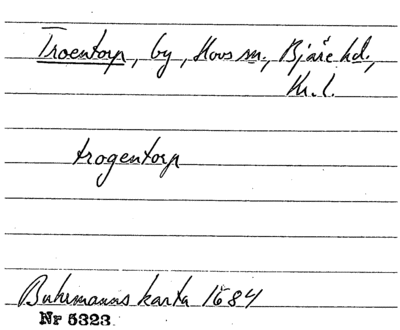 Troentorp, by, Hovs sn., Bjäre hd.,
Kr. l.
trogentorp
Buhrmanns karta 1684
Nr 5323